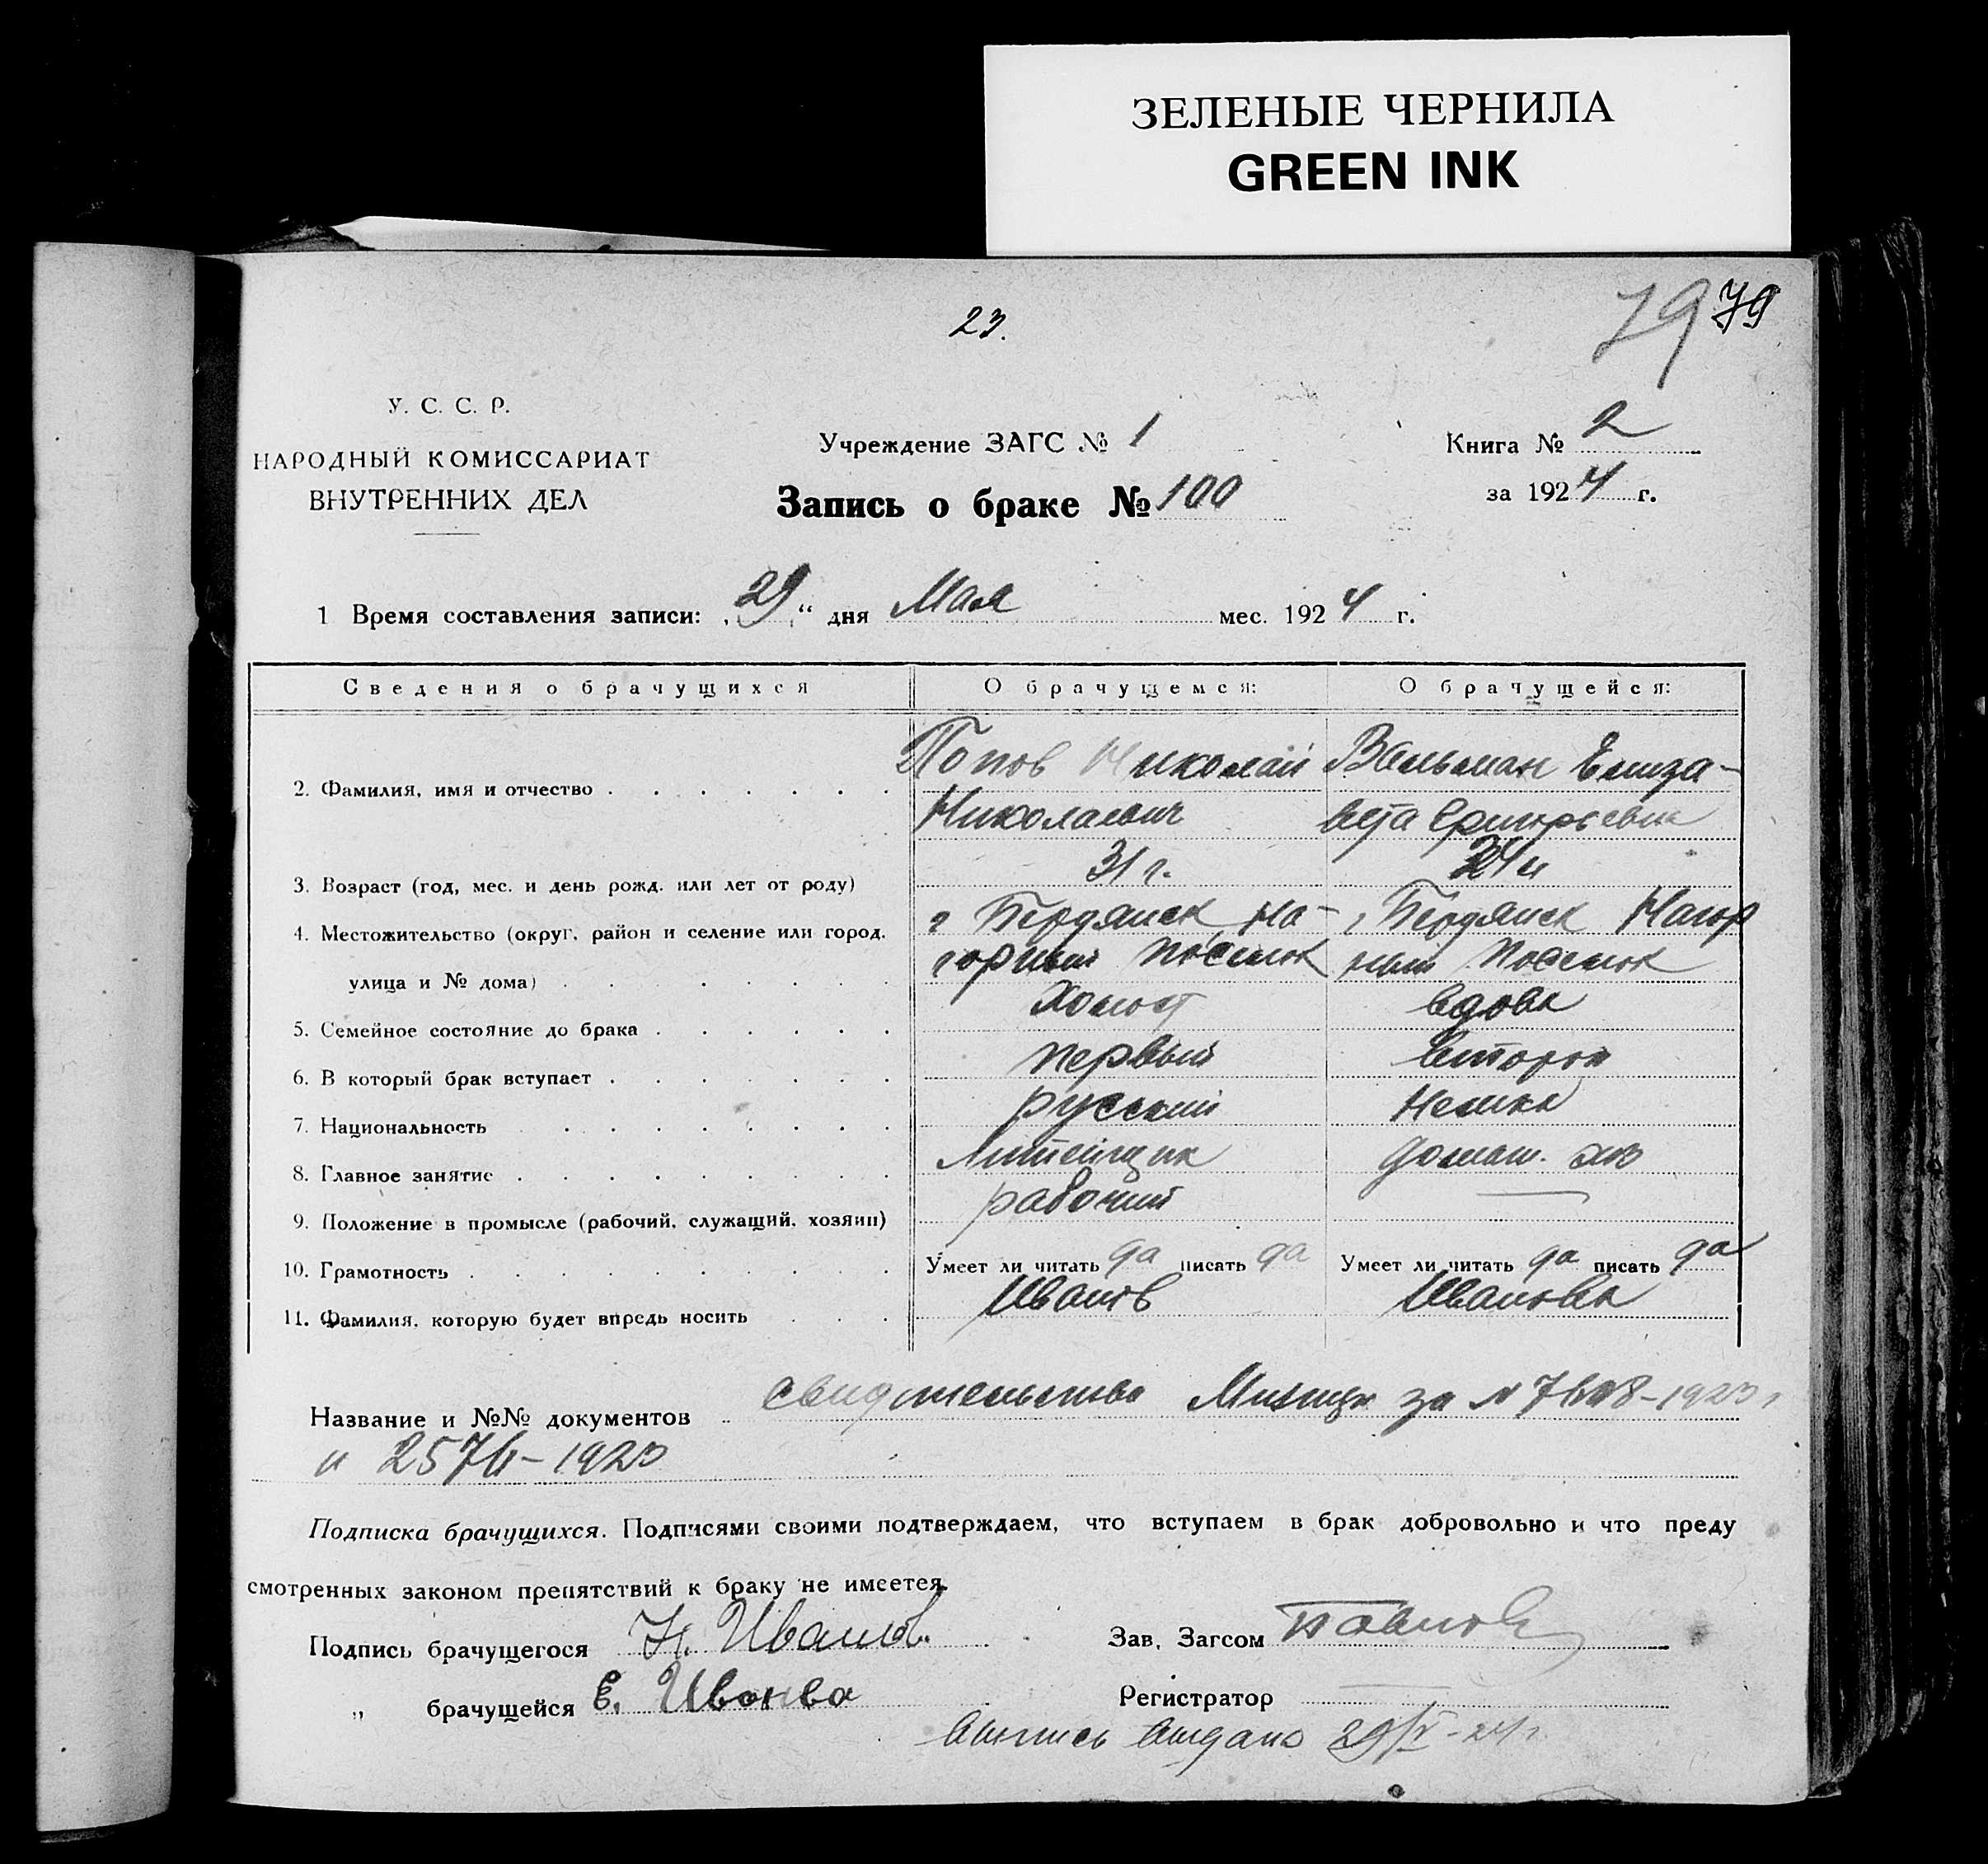 ЗЕЛЕНЫЕ ЧЕРНИЛА
GREEN INK
23.
79 79
У. С. С. Р.
НАРОДНЫЙ КОМИССАРИАТ
ВНУТРЕННИХ ДЕЛ
Учреждение ЗАГС № 1
Запись о браке № 100
Книга № 2
за 1924 г.
1 Время составления записи: „29“ дня Мая мес. 1924 г.
Сведения о брачущихся О брачущемся: О брачущейся:
2. Фамилия, имя и отчество
Попов Николай Вальман Елиза-
Николаевич вета Григорьевна
3. Возраст (год, мес. и день рожд. или лет от роду) 31 г.
4. Местожительство (округ, район и селение или город, улица и № дома)
г Бердянск На- г Бердянск Нагор
горный поселок ный Поселок
5. Семейное состояние до брака Холост вдова
6. В который брак вступает первый второй
7. Национальность русский Немка
8. Главное занятие Литейщик домаш. хоз
9. Положение в промысле (рабочий, служащий, хозяин) рабочий —
10. Грамотность Умеет ли читать да писать да Умеет ли читать да писать да
11. Фамилия, которую будет впредь носить Иванов Иванова
Название и №№ документов свидетельства Милиции за №
и 2576-1923
Подписка брачущихся. Подписями своими подтверждаем, что вступаем в брак добровольно и что преду
смотренных законом препятствий к браку не имеется.
Подпись брачущегося Н. Иванов. Зав. Загсом Павлов
„ брачущейся Е. Иванва Регистратор —
Выпись выдана 29/V-24 г